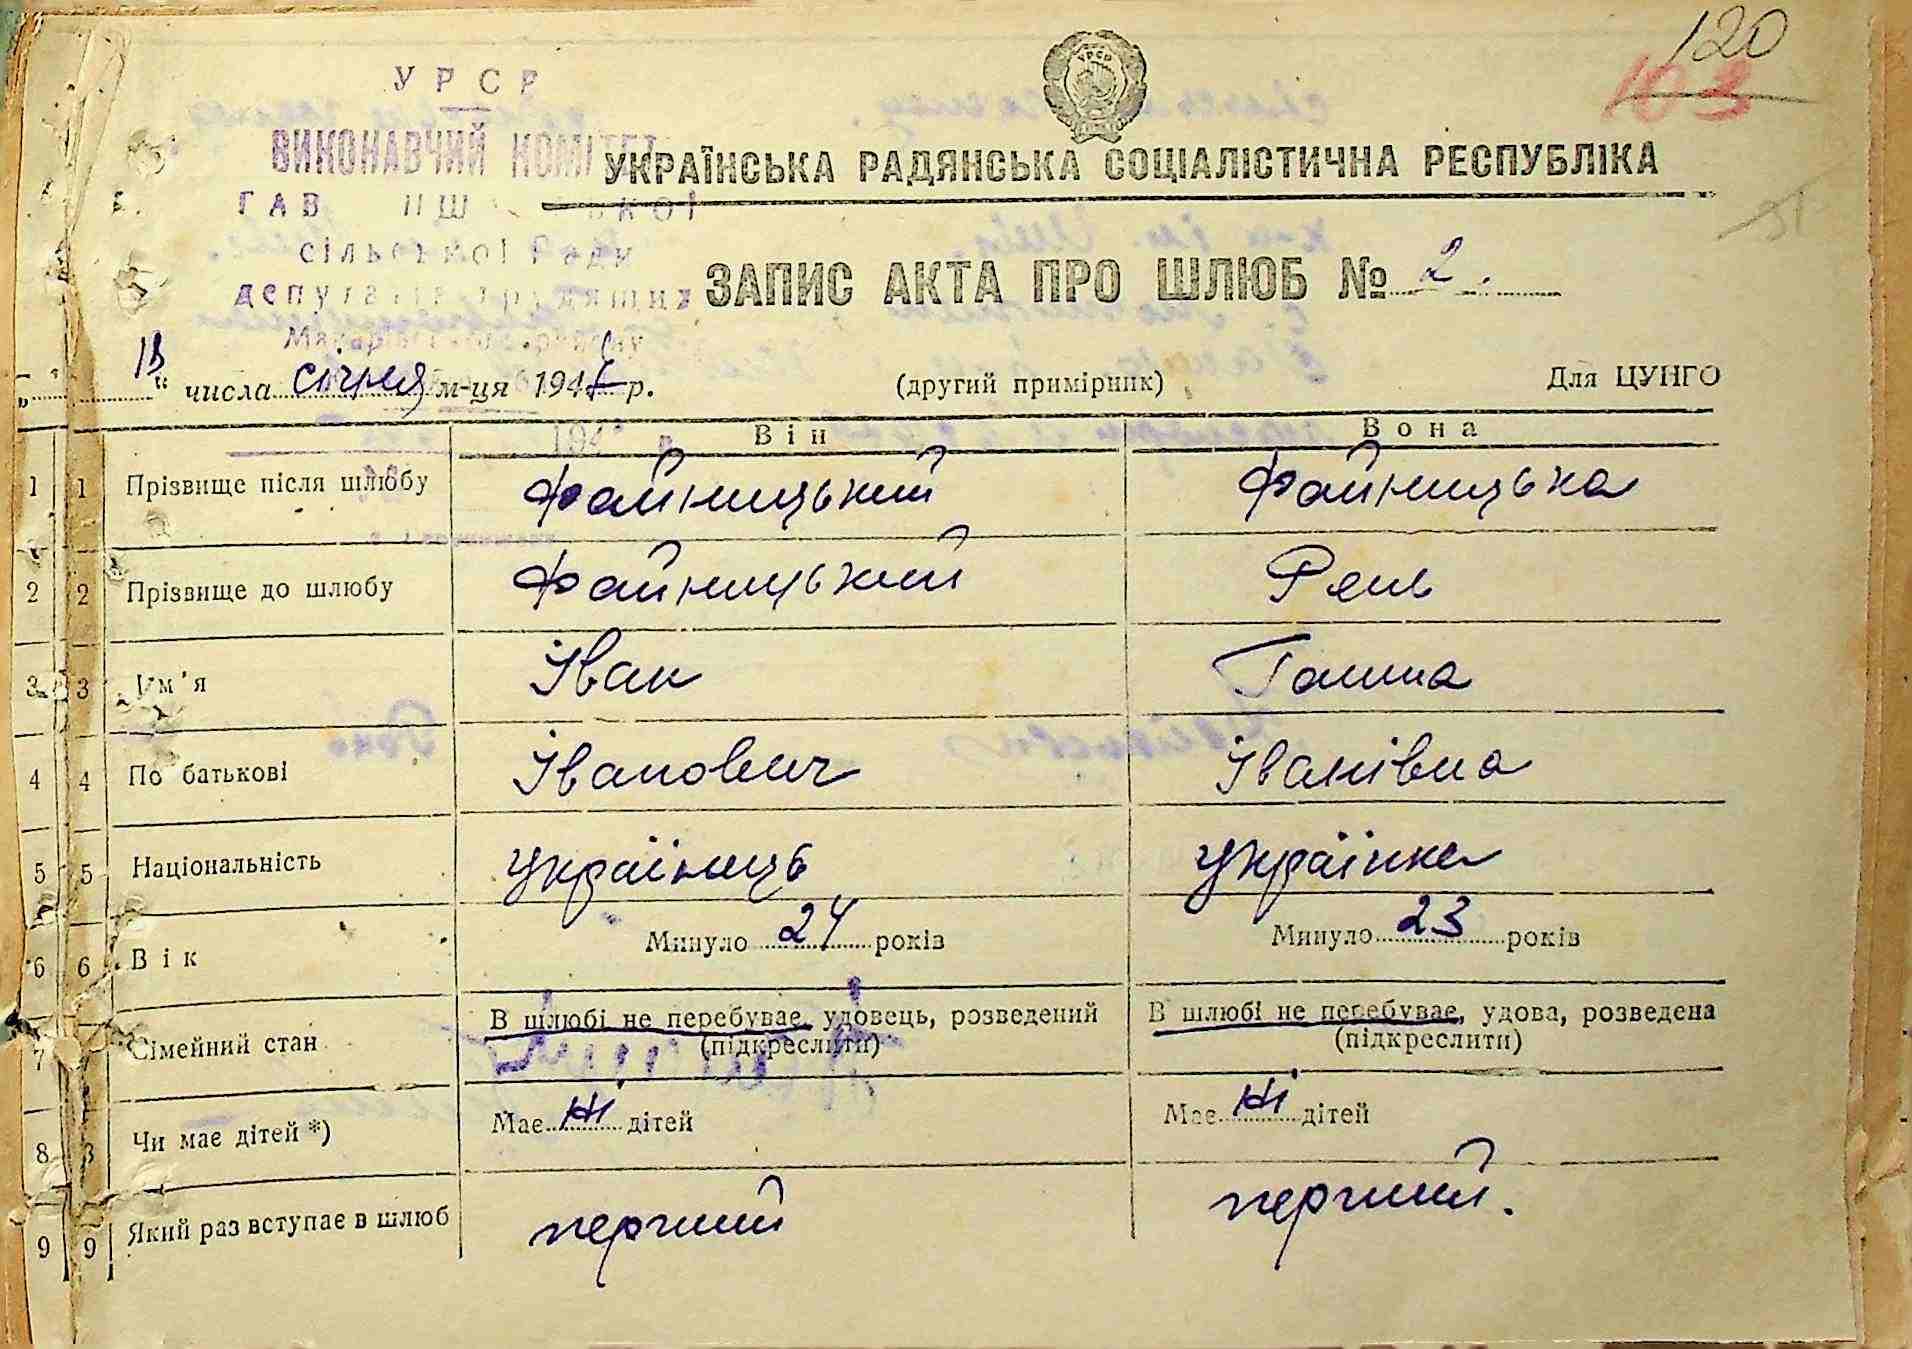 120
103
УРСР
У Р С Р
ВИКОНАВЧИЙ КОМІТЕТ
УКРАЇНСЬКА РАДЯНСЬКА СОЦІАЛІСТИЧНА РЕСПУБЛІКА
сільської Ради
депутатів трудящих
ЗАПИС АКТА ПРО ШЛЮБ № 2.
числа січня м-ця 194 р.
(другий примірник)
Для ЦУНГО
Він
Вона
1 1 Прізвище після шлюбу Файницький Файницька
2 2 Прізвище до шлюбу Файницький
3 3 Им'я Іван Ганна
4 4 По батькові Іванович Іванівна
5 5 Національність українець українка
6 6 Вік Минуло 24 років Минуло 23 років
7 Сімейний стан В шлюбі не перебуває, удовець, розведений (підкреслити) В шлюбі не перебуває, удова, розведена (підкреслити)
8 8 Чи має дітей *) Має ні дітей Має ні дітей
9 9 Який раз вступає в шлюб перший перший.